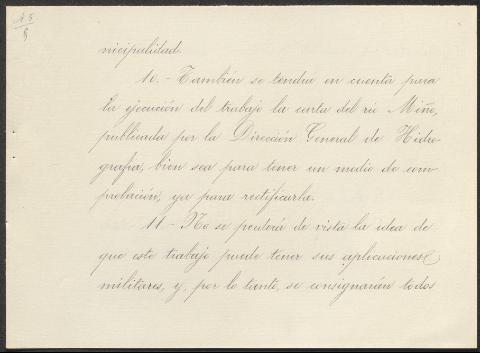 nicipalidad.
10.- También se tendrá en cuenta para
la ejecución del trabajo la carta del río Miño,
publicada por la Dirección General de Hidro-
grafía, bien sea para tener un medio de com-
probación, ya para rectificarla.
11.- No se perderá de vista la idea de
que este trabajo puede tener sus aplicaciones
militares, y, por lo tanto, se consignarán todos